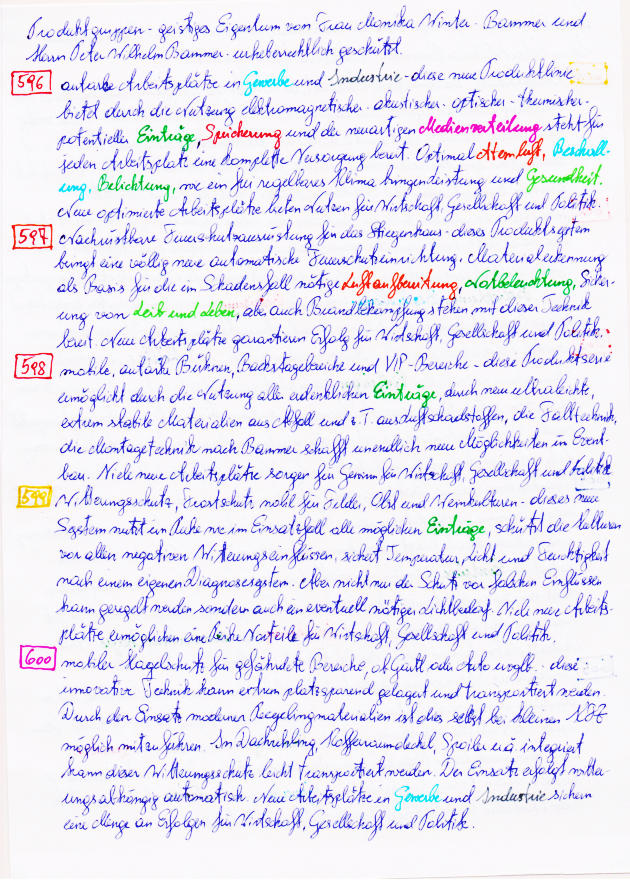 Produktgruppen - geistiges Eigentum von Frau Monika Winter - Bammer und
Herrn Peter Wilhelm Bammer - urheberrechtlich geschützt.
596 autarke Arbeitsplätze in Gewerbe und Industrie - diese neue Produktlinie
bietet durch die Nutzung elektromagnetischer - akustischer - optischer - thermischer -
potentieller Einträge, Speicherung und der neuartigen Medienverteilung steht für
jeden Arbeitsplatz eine komplette Versorgung bereit. Optimal Atemluft, Beschall-
ung, Belichtung, wie ein frei regelbares Klima bringen Leistung und Gesundheit.
Neue optimierte Arbeitsplätze bieten Nutzen für Wirtschaft, Gesellschaft und Politik.
597 Nachrüstbare Feuerschutzausrüstung für das Stiegenhaus - dieses Produktsystem
bringt eine völlig neue automatische Feuerschutzeinrichtung. Materialerkennung
als Basis für die im Schadensfall nötige Luftaufbereitung, Notbeleuchtung, Sicher-
ung von Leib und Leben, aber auch Brandbekämpfung stehen mit dieser Technik
bereit. Neue Arbeitsplätze garantieren Erfolg für Wirtschaft, Gesellschaft und Politik.
598 mobile, autarke Bühnen, Backstagebereiche und VIP-Bereiche - diese Produktserie
ermöglicht durch die Nutzung aller erdenklichen Einträge, durch neue ultraleichte,
extrem stabile Materialien aus Abfall und z.T. aus Luftschadstoffen, die Falttechnik,
die Montagetechnik nach Bammer schafft unendlich neue Möglichkeiten im Event-
bau. Viele neue Arbeitsplätze sorgen für Gewinn für Wirtschaft, Gesellschaft und Politik.
599 Witterungsschutz, Frostschutz mobil für Felder, Obst und Weinkulturen - dieses neue
System nutzt in Ruhe wie im Einsatzfall alle möglichen Einträge, schützt die Kulturen
vor allen negativen Witterungseinflüssen, sichert Temperatur, Licht und Feuchtigkeit
nach einem eigenen Diagnosesystem. Aber nicht nur der Schutz vor falschen Einflüssen
kann geregelt werden sondern auch ein eventuell nötiger Lichtbedarf. Viele neue Arbeits-
plätze ermöglichen eine Reihe Vorteile für Wirtschaft, Gesellschaft und Politik.
600 mobiler Hagelschutz für gefährdete Bereiche, ob Gartl oder Auto - diese
innovative Technik kann extrem platzsparend gelagert und transportiert werden.
Durch den Einsatz moderner Recyclingmaterialien ist dies selbst bei kleinen KFZ
möglich mitzuführen. Im Dachrehling, Kofferraumdeckel, Spoiler u.ä. integriert
kann dieser Witterungsschutz leicht transportiert werden. Der Einsatz erfolgt witter-
ungsabhängig automatisch. Neue Arbeitsplätze in Gewerbe und Industrie sichern
eine Menge an Erfolgen für Wirtschaft, Gesellschaft und Politik.